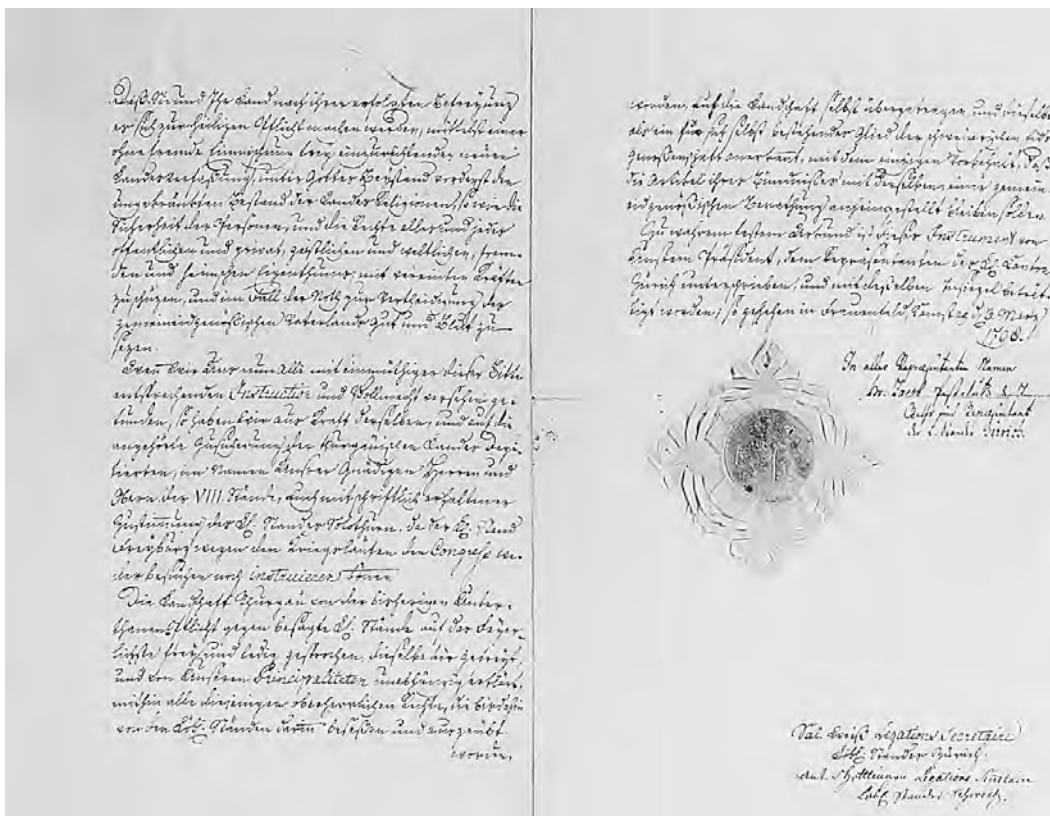 Daß Sie und Ihr Land nach ihrer erfolgten Befreyung
es sich zur heiligen Pflicht machen werden, mittelst einer
ohne fremde Einmischung frey einzurichtenden neuen
Landesverfaßung, unter Gottes Beystand vorderst den
ungekränkten Bestand der Landes Religionen, so wie die
Sicherheit der Personen, und die Rechte alles und jedes
öffentlichen und privat, geistlichen und weltlichen, frem-
den und heimschen Eigenthums, mit vereinten Kräften
zuschüzen, und im Fall der Noth zur Vertheidigung des
gemeineidgenößischen Vaterlands Gut und Blut zu
sezen.
Wenn Wir Uns nun alle mit einmüthiger dieser Bitte
entsprechenden Instruction und Vollmacht versehen ge-
funden, so haben wir aus Kraft derselben, und auf die
angehörte Zusicherung der Thurgäuischen Landes Depu-
tierten, im Namen Unsrer Gnädigen Herren und
Obern der VIII. Stände, auch mit schriftlich erhaltener
Zustimmung des Lobl. Standes Solothurn, da der Lobl. Stand
Freyburg wegen den Kriegsläufen den Congreß we-
der besuchen noch instruieren könen
Die Landschaft Thurgäu von der bisherigen Unter-
thanen Pflicht gegen besagte Lobl. Stände auf das Feyer-
lichste frey und ledig gesprochen, dieselbe
und von Unseren Principalitäten unabhängig erklärt,
mithin alle diejenigen oberherrlichen Rechte, die bis dahin
von den Lobl. Ständen darin beseßen und ausgeübt
worden,
worden, auf die Landschaft selbst übergetragen, und dieselbe
als ein für sich selbst bestehendes Glied der schweizerischen Eid-
genossenschaft anerkennt, mit dem einzigen Vorbehalt, daß
die Artikel ihres mit derselben, einer gemein
eidgenößischen Berathung anheimgestellt bleiben sollen.
Zu wahrem festem Urkund ist dieses Instrument von
Unserm Präsident, dem Repräsentanten des Lobl. Cantons
Zürich unterschrieben, und mit deßelben Insigel bekräf-
tigt worden; so geschehen in Frauenfeld, Samstag d. 3. Merz
1798.
In aller Repräsentanten Namen
Joh. Jacob
und Repräsentant
des L. Standes Zürich.
Sal. Legations Secretaire
Lobl. Standes Zürich.
Legations
Lobl. Standes